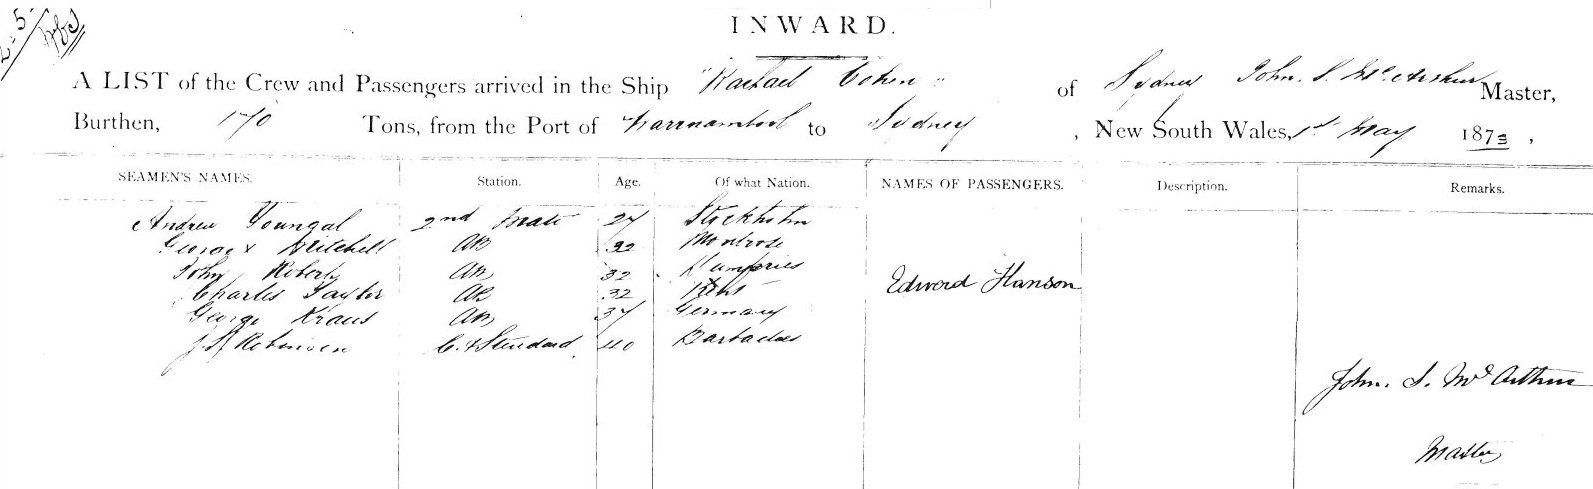 2-5
INWARD.
A LIST of the Crew and Passengers arrived in the Ship "Rachael Cohen" of Sydney John. S. McArthur Master,
Burthen, 170 Tons, from the Port of Warrnambool to Sydney, New South Wales, 1st May 1873,
SEAMEN'S NAMES. Station. Age. Of what Nation. NAMES OF PASSENGERS. Description. Remarks.
Andrew Youngal 2nd Mate 27 Stockholm
George x Mitchell AB 32 Montrose
John Roberts AB 32 Dumfries
Edward Hanson
Charles Taylor AB 32 Kent
George Kraus AB 37 Germany
J S Robinson C. & Steudard 40 Barbadoes
John. S. McArthur
Master